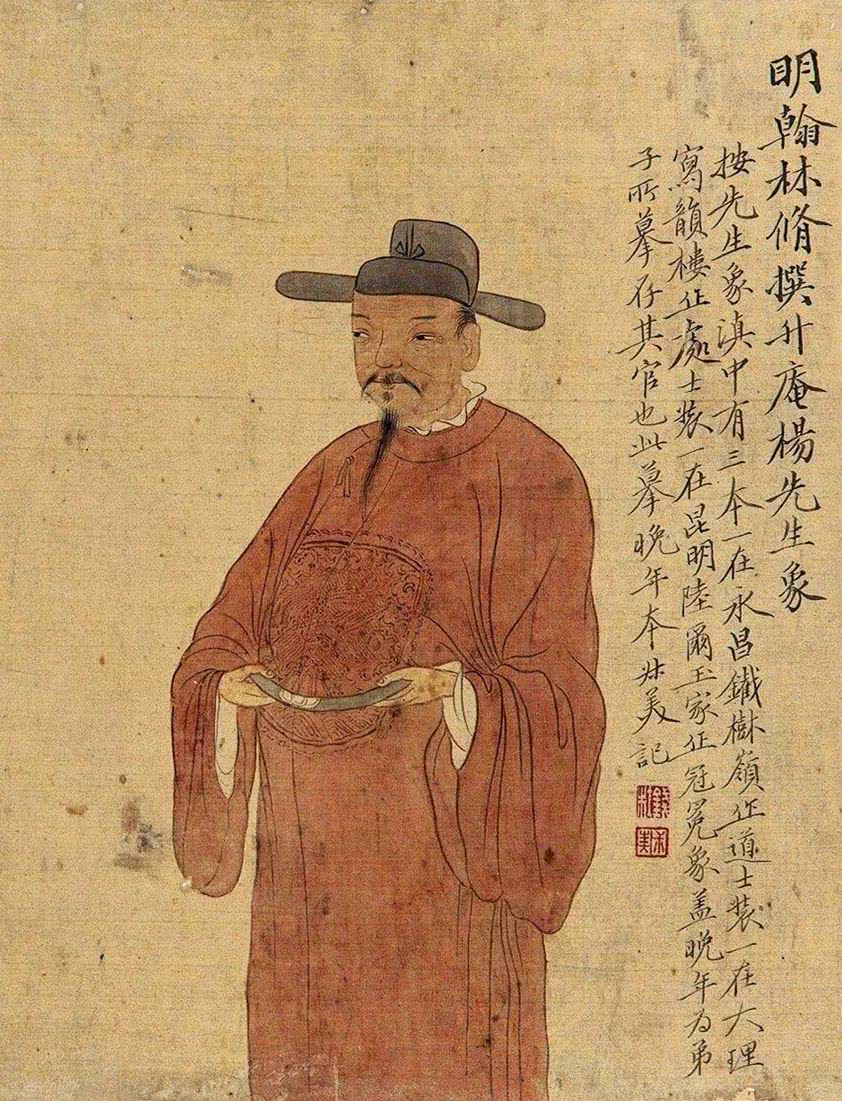 明翰林脩撰升庵楊先生象
按先生象滇中有三本一在永昌鐵樹嶺作道士裝一在大理
寫韻樓作處士裝一在昆明陸爾玉家作冠冕象蓋晚年为弟
子所摹存其官也此摹晚年本叔美記
錢叔美